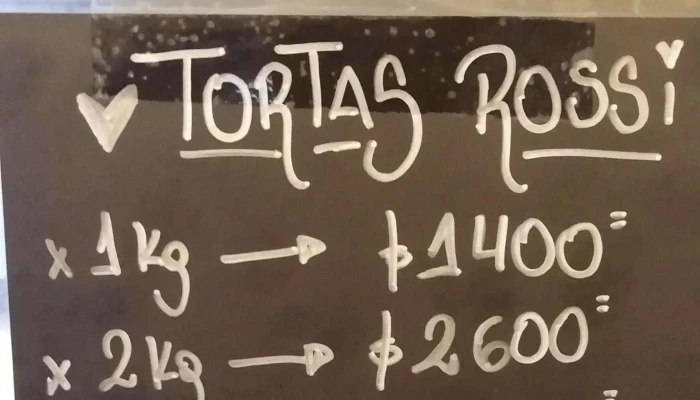 TORTAS ROSSi
x 1 Kg → $1400=
x 2 Kg → $2600=